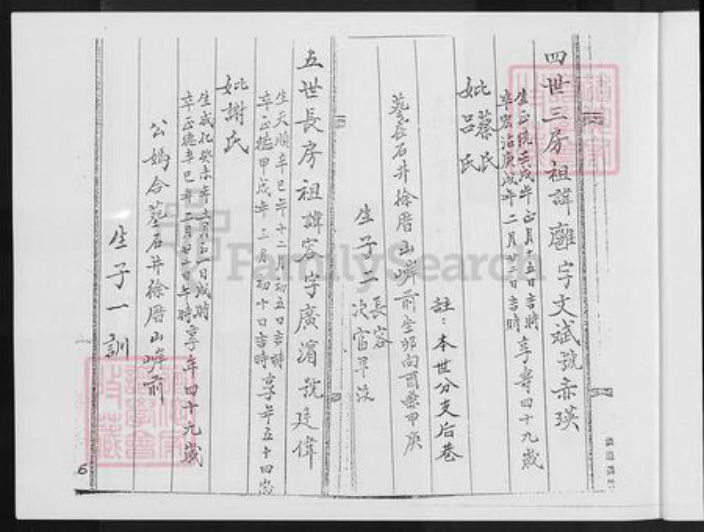 四世三房祖諱離字文斌號赤瑛
生正統壬戌年正月十五日吉時
卒弘治庚戌年二月廿二日吉時 享壽四十九歲
妣蔡氏
呂氏
註：本世分支后巷
墓在石井徐厝山岸前坐卯向酉兼甲庚
生子二 長容
次富早沒
五世長房祖諱容字廣濱號廷偉
生天順辛巳年十二月初五日吉時
卒正德甲戌年三月初十日吉時 享年五十四歲
妣謝氏
生成化癸未年 月初一日戌時
卒正德辛巳年二月廿一日午時 享年四十九歲
公媽合墓石井徐厝山岸前
生子一訓
6
FamilySearch